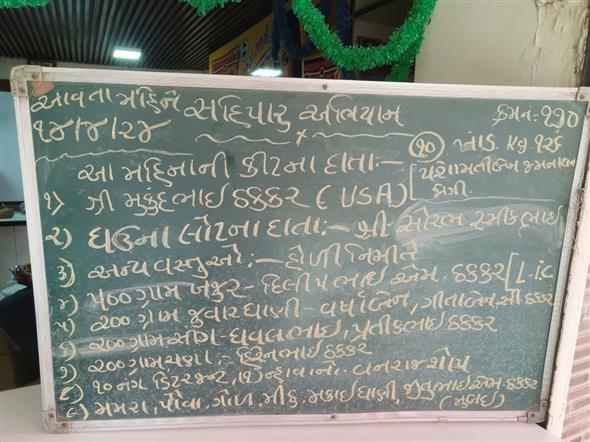 આવતા મહિને સહિયારુ અભિયાન ક્રમાન:-૧૩૦
૧૪/૪/૨૪
આ મહિનાની કીટના દાતા:- ૧૦ ખાંડ. Kg ૧૨૬
૧) શ્રી મુકુંદભાઈ ઠક્કર (USA)
૨) ઘઉંના લોટના દાતા:- શ્રી સૌરભ રમીકભાઈ
૩) અન્ય વસ્તુઓ:- હોળી નિમીતે
૪) ૫૦૦ ગ્રામ ખજુર- દિલીપભાઈ એમ. ઠક્કર [L.ic
૫ ૨૦૦ ગ્રામ જુવાર ધાણી- વર્ષાબેન, ગીતાબેન સી ઠક્કર
૬) ૨૦૦ ગ્રામ સીંગ- ધવલભાઈ, પ્રતીકભાઈ ઠક્કર
૭) ૨૦૦ ગ્રામ ચણા:- હિરેનભાઈ ઠક્કર
૮) ૧૦ નંગ ડિટરજન્ટ, (૧) ન્હાવાનો. વનરાજ સોપ
૯) મમરા, પૌંવા, ગોળ, મીઠુ, મકાઈ ધાણી, જીતુભાઈ એમ ઠક્કર
(મુંબઈ)